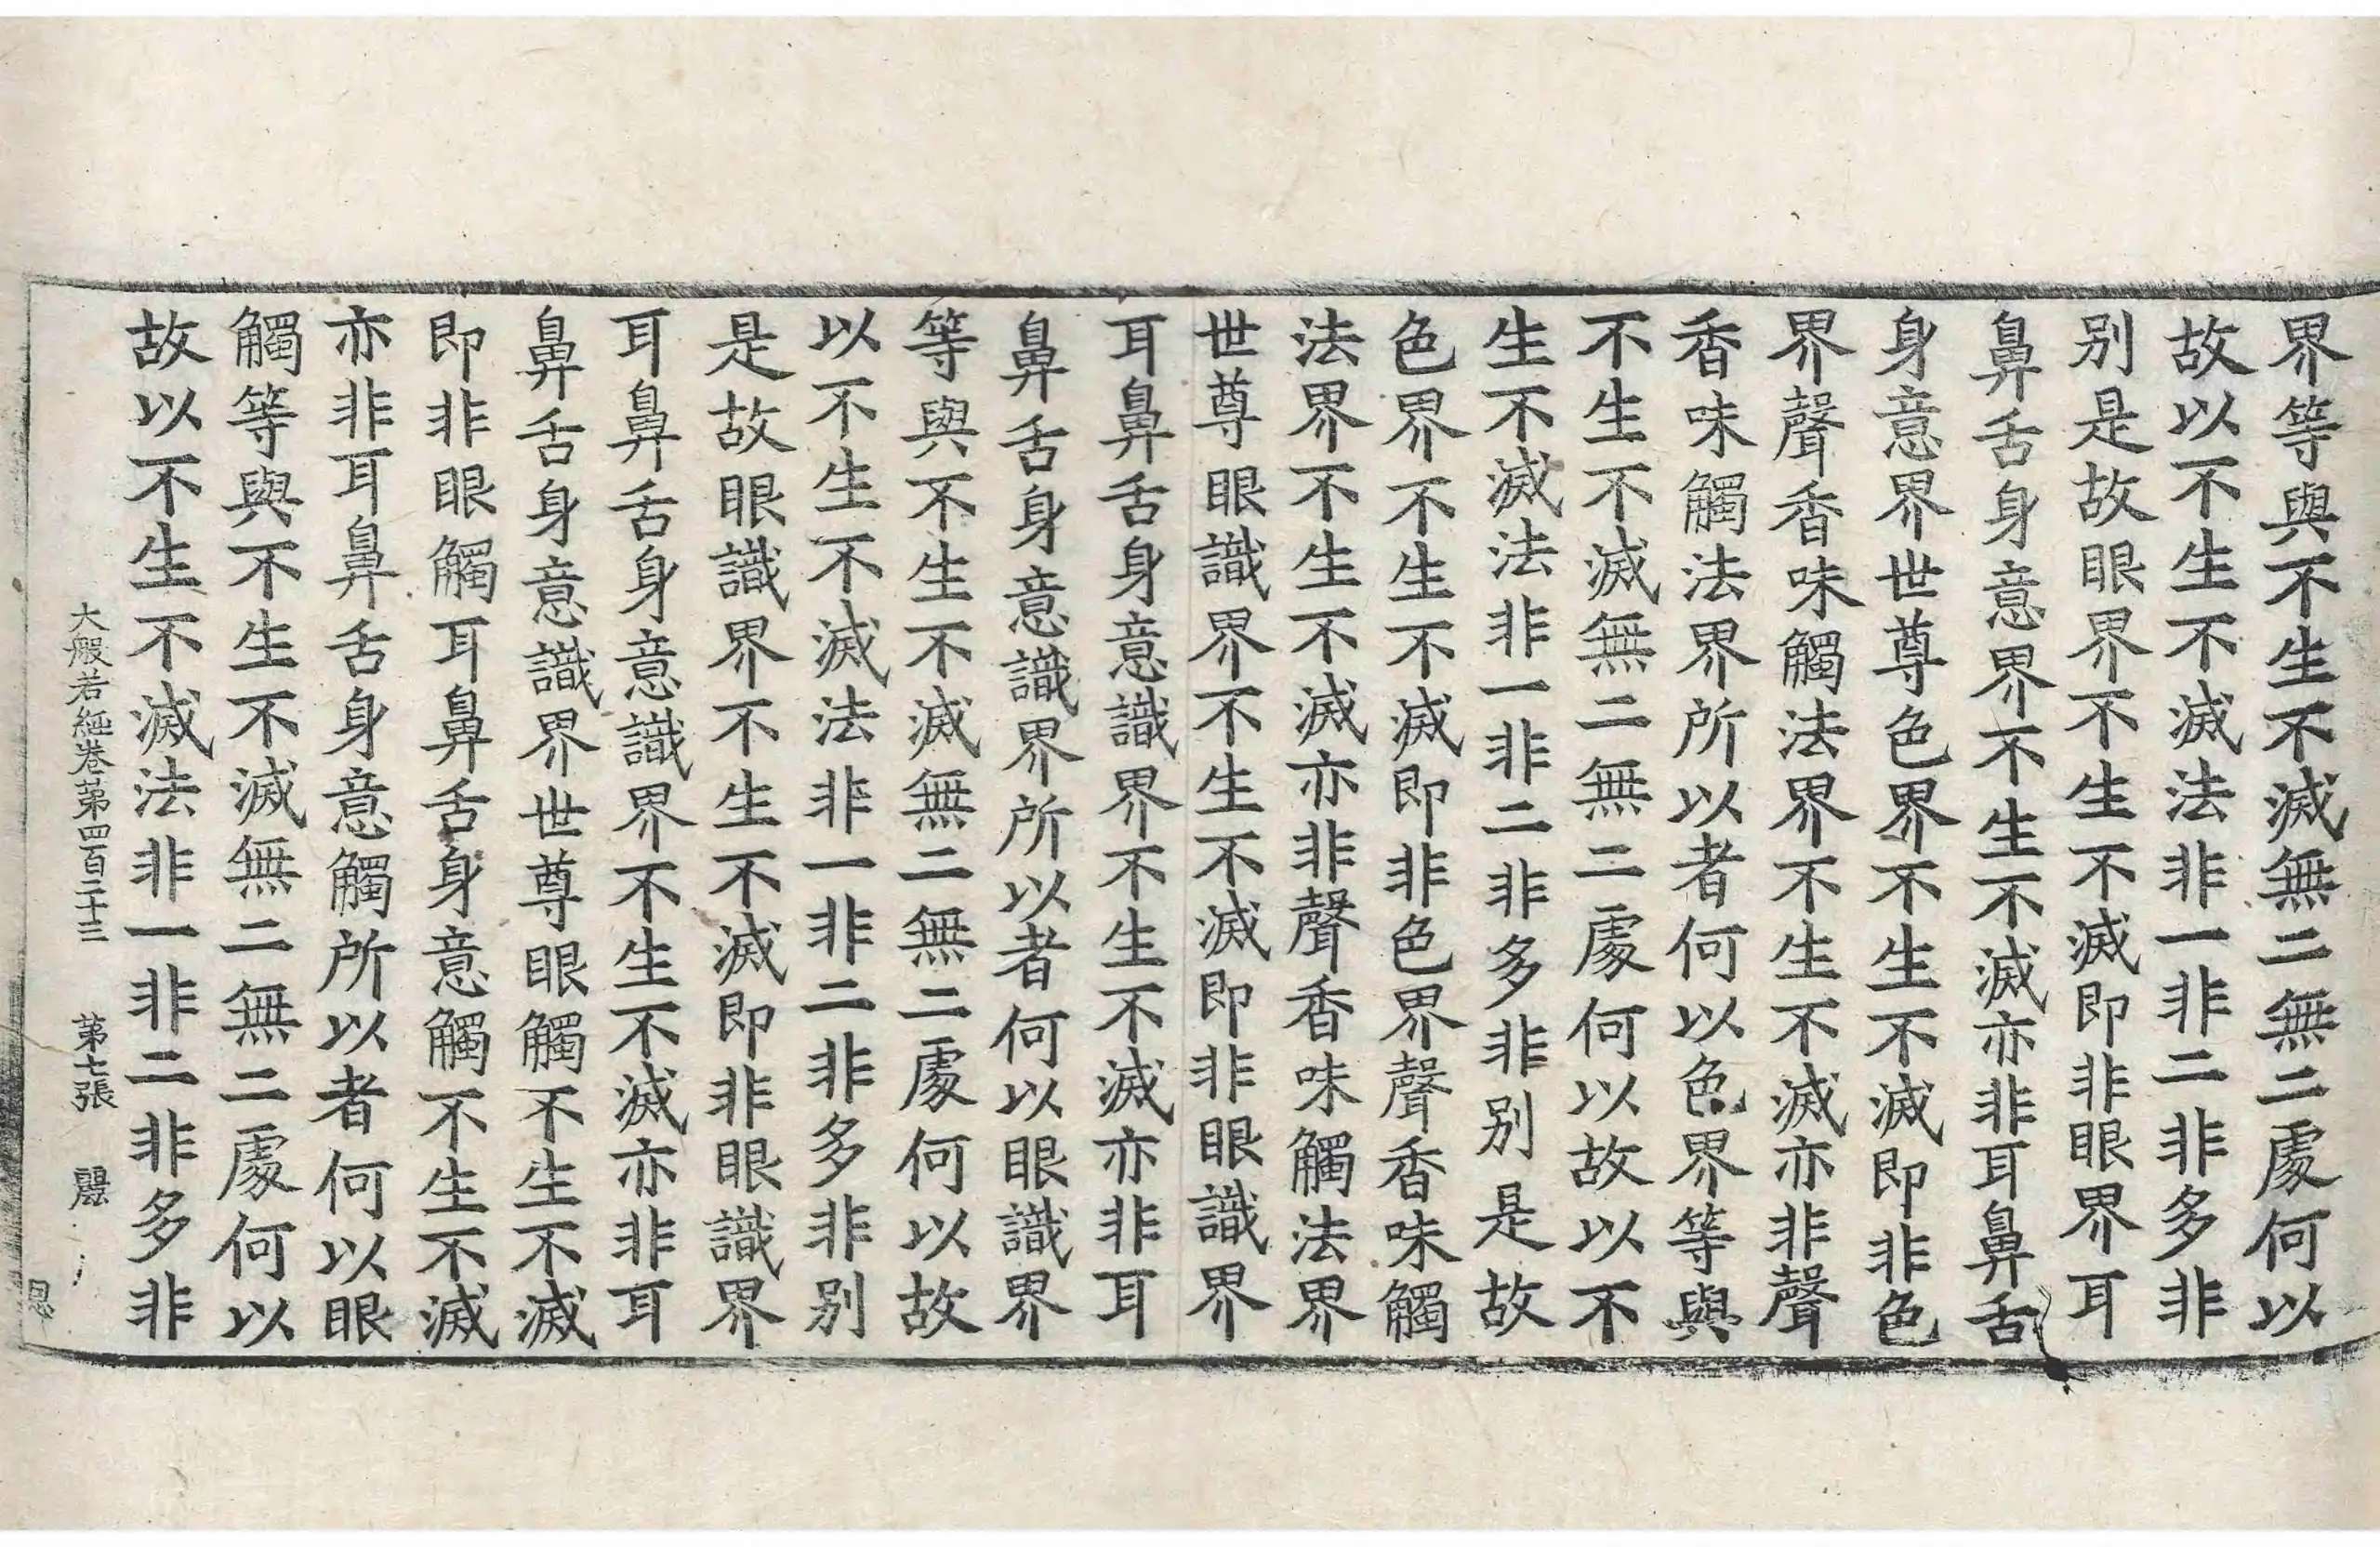 界等與不生不滅無二無二處何以
故以不生不滅法非一非二非多非
別是故眼界不生不滅即非眼界耳
鼻舌身意界不生不滅亦非耳鼻舌
身意界世尊色界不生不滅即非色
界聲香味觸法界不生不滅亦非聲
香味觸法界所以者何以色界等與
不生不滅無二無二處何以故以不
生不滅法非一非二非多非別是故
色界不生不滅即非色界聲香味觸
法界不生不滅亦非聲香味觸法界
世尊眼識界不生不滅即非眼識界
耳鼻舌身意識界不生不滅亦非耳
鼻舌身意識界所以者何以眼識界
等與不生不滅無二無二處何以故
以不生不滅法非一非二非多非別
是故眼識界不生不滅即非眼識界
耳鼻舌身意識界不生不滅亦非耳
鼻舌身意識界世尊眼觸不生不滅
即非眼觸耳鼻舌身意觸不生不滅
亦非耳鼻舌身意觸所以者何以眼
觸等與不生不滅無二無二處何以
故以不生不滅法非一非二非多非
大般若經卷第四百二十三 第七張